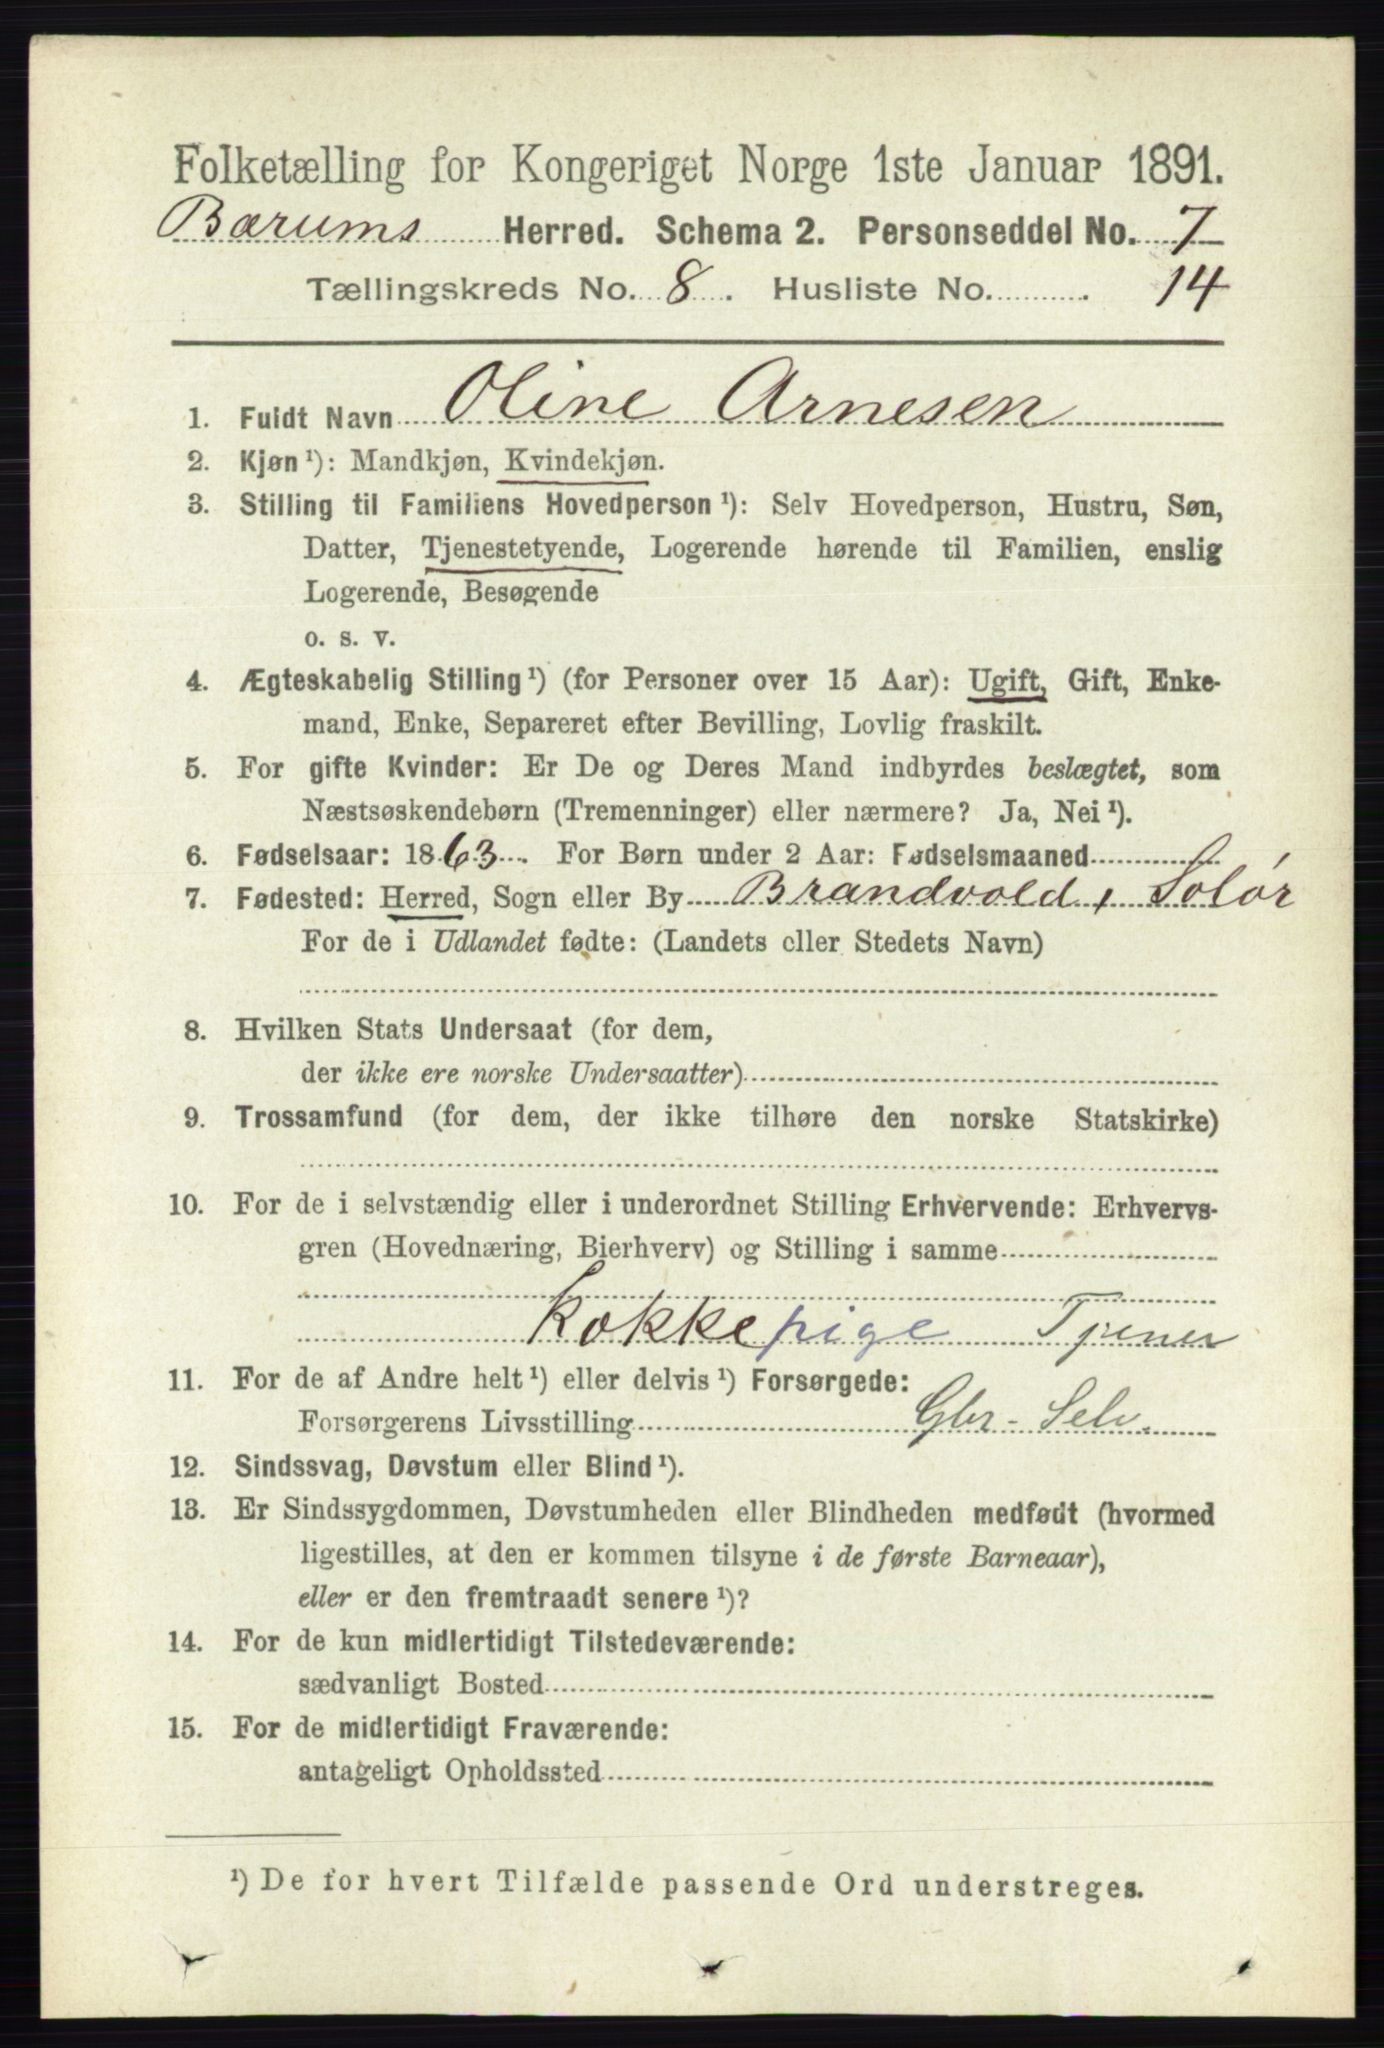 Folketælling for Kongeriget Norge 1ste Januar 1891.
Bærums Herred. Schema 2. Personseddel No. 7
Tællingskreds No. 8. Husliste No. 14
1. Fuldt Navn Oline Arnesen
2. Kjøn ¹): Mandkjøn, Kvindekjøn.
3. Stilling til Familiens Hovedperson ¹): Selv Hovedperson, Hustru, Søn,
Datter, Tjenestetyende, Logerende hørende til Familien, enslig
Logerende, Besøgende
o. s. v.
4. Ægteskabelig Stilling ¹) (for Personer over 15 Aar): Ugift, Gift, Enke-
mand, Enke, Separeret efter Bevilling, Lovlig fraskilt.
5. For gifte Kvinder: Er De og Deres Mand indbyrdes beslægtet, som
Næstsøskendebørn (Tremenninger) eller nærmere? Ja, Nei ¹).
6. Fødselsaar: 1863. For Børn under 2 Aar: Fødselsmaaned
7. Fødested: Herred, Sogn eller By Brandvold, Solør
For de i Udlandet fødte: (Landets eller Stedets Navn)
8. Hvilken Stats Undersaat (for dem,
der ikke ere norske Undersaatter)
9. Trossamfund (for dem, der ikke tilhøre den norske Statskirke)
10. For de i selvstændig eller i underordnet Stilling Erhvervende: Erhvervs-
gren (Hovednæring, Bierhverv) og Stilling i samme
Kokkepige Tjener
11. For de af Andre helt ¹) eller delvis ¹) Forsørgede:
Forsørgerens Livsstilling Gbr - Selv.
12. Sindssvag, Døvstum eller Blind ¹).
13. Er Sindssygdommen, Døvstumheden eller Blindheden medfødt (hvormed
ligestilles, at den er kommen tilsyne i de første Barneaar),
eller er den fremtraadt senere ¹)?
14. For de kun midlertidigt Tilstedeværende:
sædvanligt Bosted
15. For de midlertidigt Fraværende:
antageligt Opholdssted
¹) De for hvert Tilfælde passende Ord understreges.